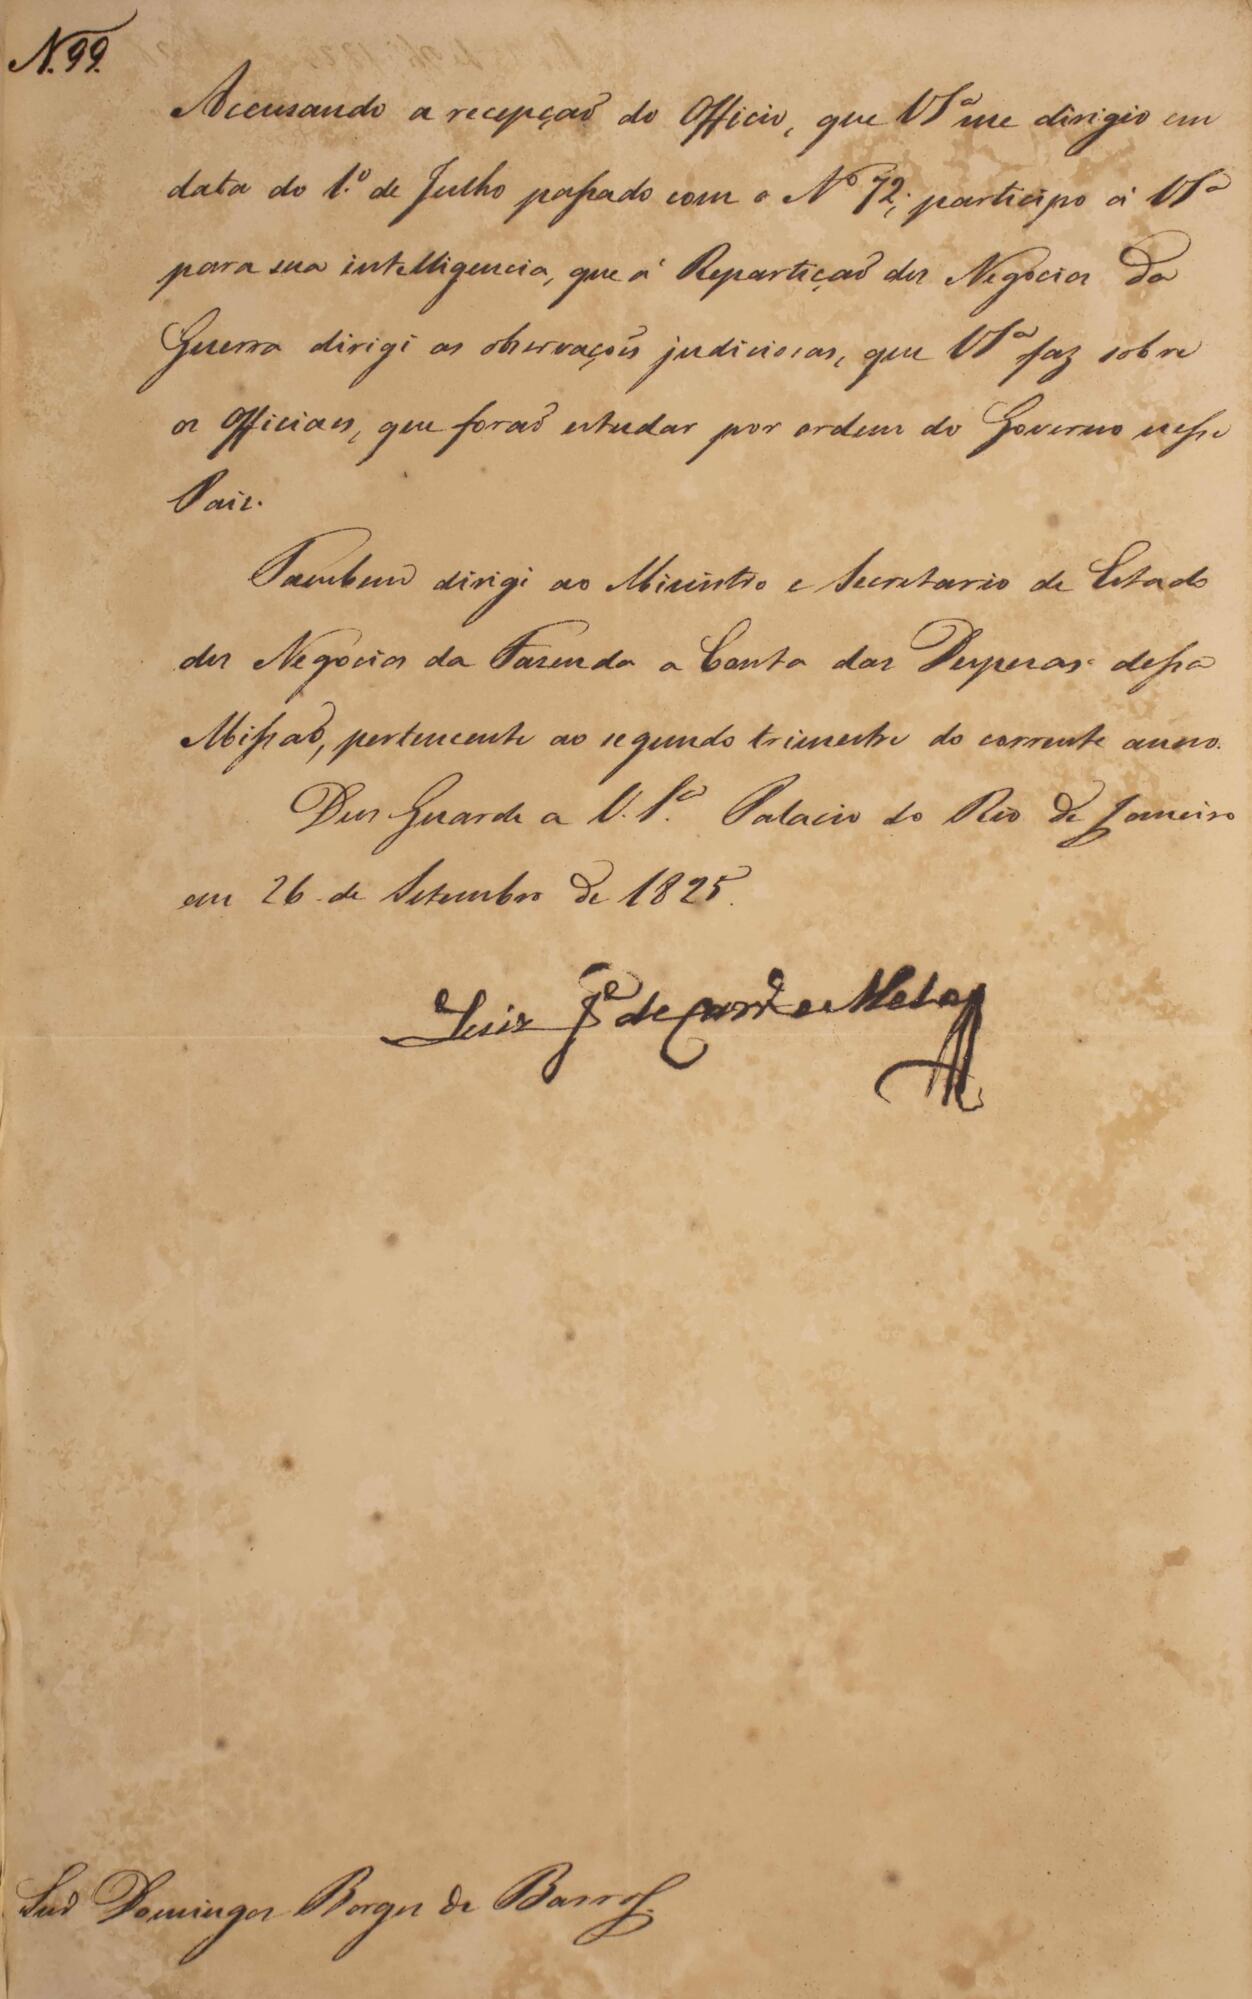 N. 99.
Accusando a recepçaõ do Officio, que VSª me dirigio em
data do 1.º de Julho passado com o Nº 72; participo á VSª
para sua intelligencia, que á Repartiçaõ dos Negocios da
Guerra dirigi as observações judiciosas, que VSª faz sobre
os Officiaes, que foraõ estudar por ordem do Governo nesse
Paiz.
Tambem dirigi ao Ministro e Secretario de Estado
dos Negocios da Fazenda a Conta das Despezas dessa
Missaõ, pertencente ao segundo trimestre do corrente anno.
Deos Guarde a V. Sª. Palacio do Rio de Janeiro
em 26 de Setembro de 1825.
Luiz Jº de Carvº e Mello
Snr̃ Domingos Borges de Barros.